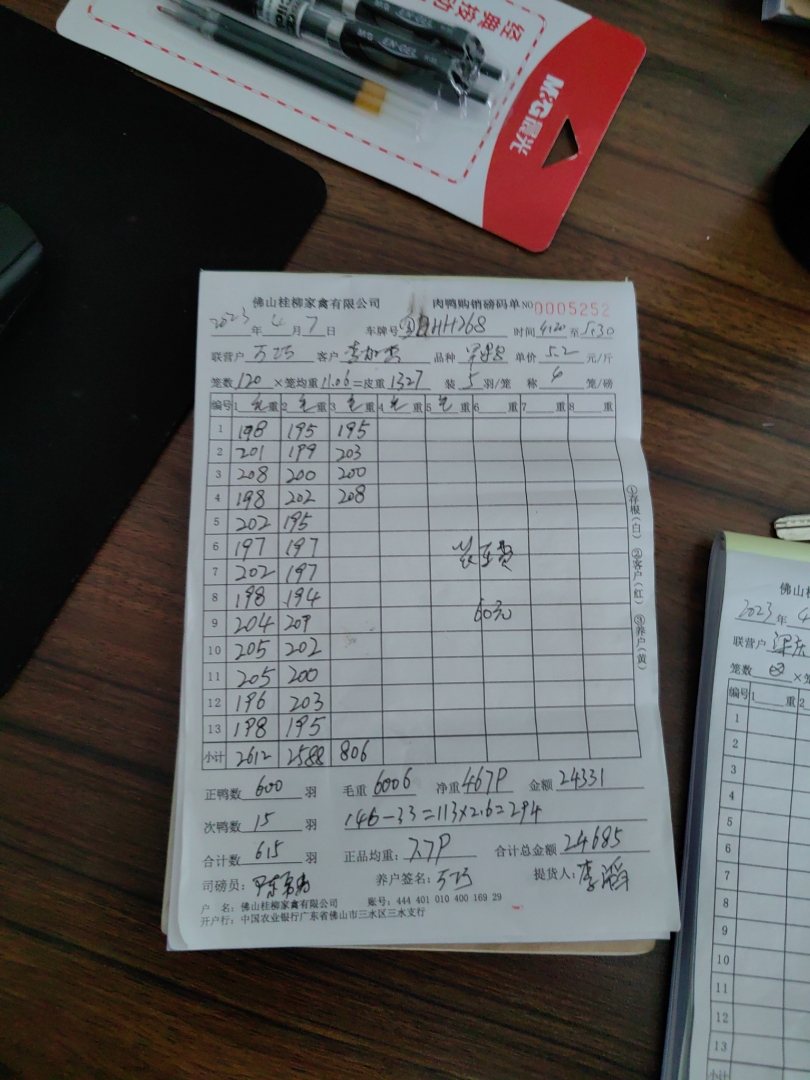 经典按动
M&G晨光
佛山桂柳家禽有限公司 肉鸭购销磅码单 NO 0005252
2023年 4月 7日 车牌号 HH268 时间 4:20 至 5:30
联营户 万巧 客户 品种 单价 5.2 元/斤
笼数 120 ×笼均重 11.06 =皮重 1327 装 5 羽/笼 称 笼/磅
编号 1 毛重 2 毛重 3 毛重 4 毛重 5 毛重 6 重 7 重 8 重
1 198 195 195
2 201 199 203
3 208 200 200
4 198 202 208
5 202 195
6 197 197
7 202 197
8 198 194
9 204 209
10 205 202
11 205 200
12 196 203
13 198 195
小计 2612 2588 806
装车费
60元
①存根(白) ②客户(红) ③养户(黄)
正鸭数 600 羽 毛重 6006 净重 4679 金额 24331
次鸭数 15 羽 146-33=113×2.6=294
合计数 615 羽 正品均重: 7.79 合计总金额 24685
司磅员: 养户签名: 万巧 提货人: 李滔
户 名: 佛山桂柳家禽有限公司 账号: 444 401 010 400 169 29
开户行: 中国农业银行广东省佛山市三水区三水支行
佛山桂
2023年 4
联营户
笼数 ×笼
编号 1 重 2
1
2
3
4
5
6
7
8
9
10
11
12
13
小计